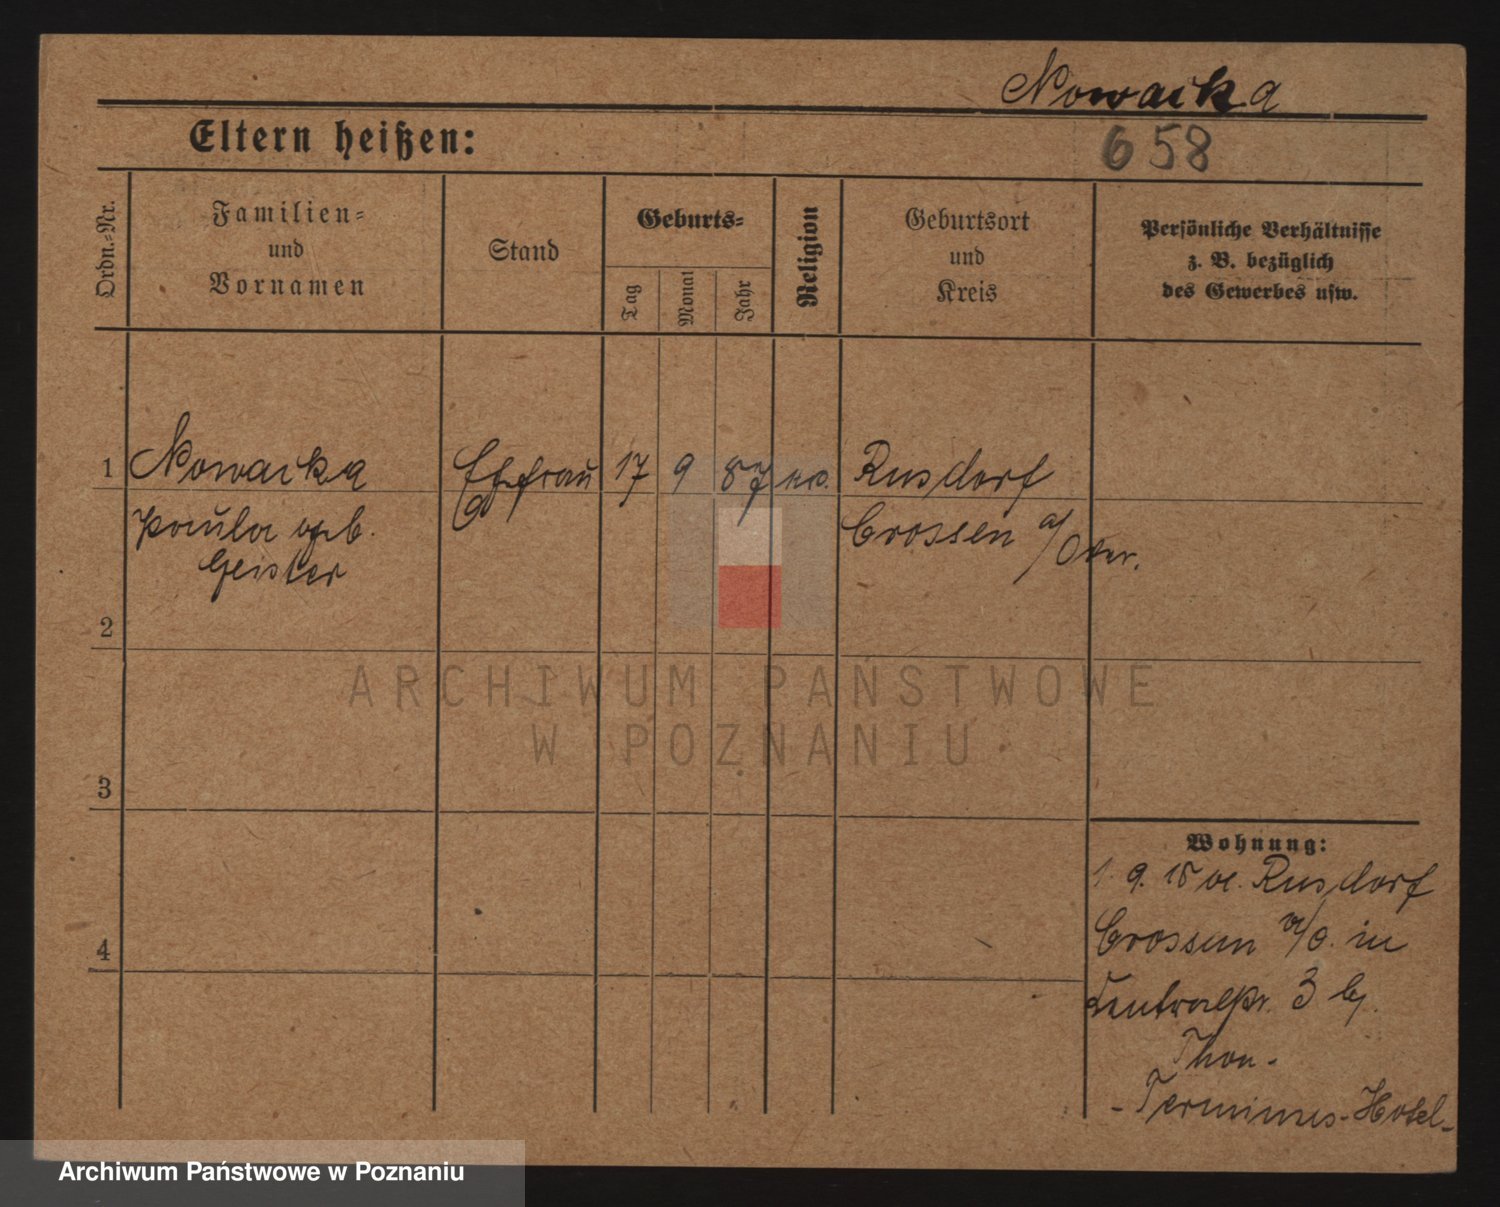 Nowacka
658
Eltern heißen:
Ordn.=Nr.
Familien=
und
Vornamen
Stand
Geburts=
Tag
Monat
Jahr
Religion
Geburtsort
und
Kreis
Persönliche Verhältnisse
z. B. bezüglich
des Gewerbes usw.
1 Nowacka Ehefrau 17 9 87 Rusdorf
Paula geb. Crossen a/Oder.
Geister
2
3
4
Wohnung:
1. 9. 18 Rusdorf
Crossen a/O. in
3 b.
Thon-
-Terminus-Hotel-
ARCHIWUM PAŃSTWOWE
W POZNANIU
Archiwum Państwowe w Poznaniu